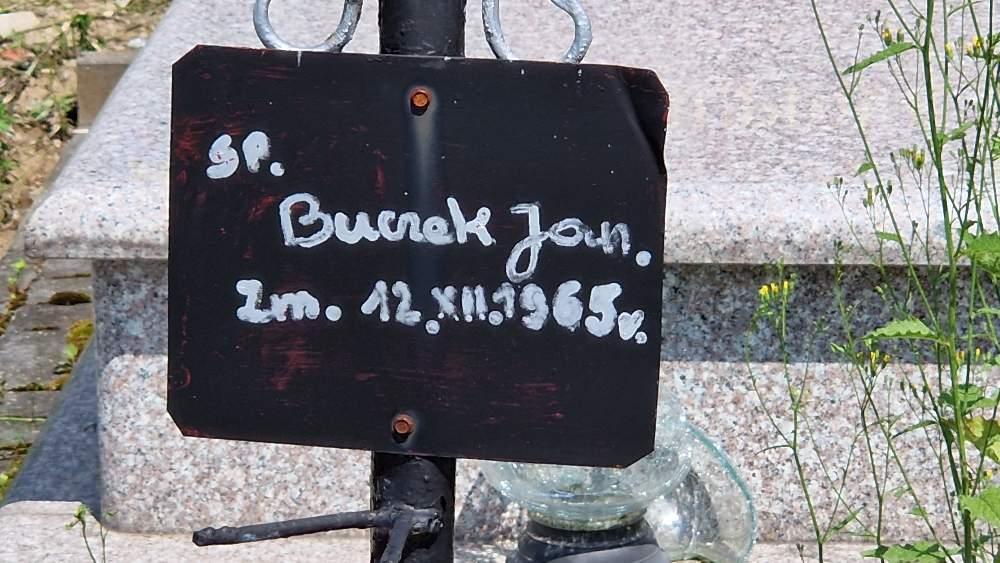 SP.
Buczek Jan.
Zm. 12.XII.1965r.